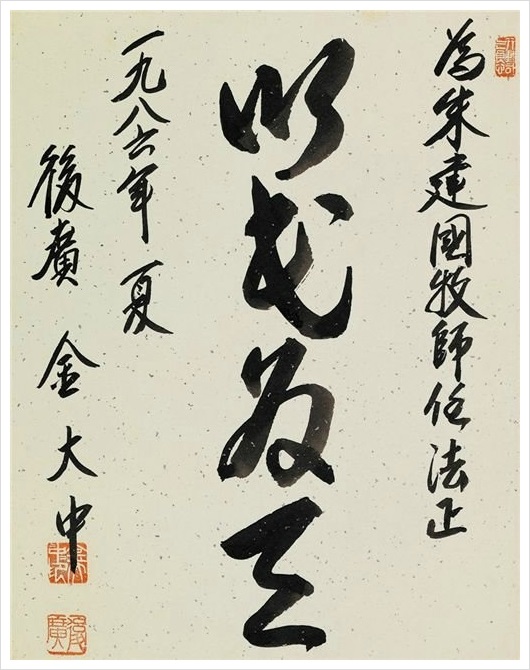 為朱建國牧師任法正
以民為天
一九八六年 夏
後廣 金大中
後廣